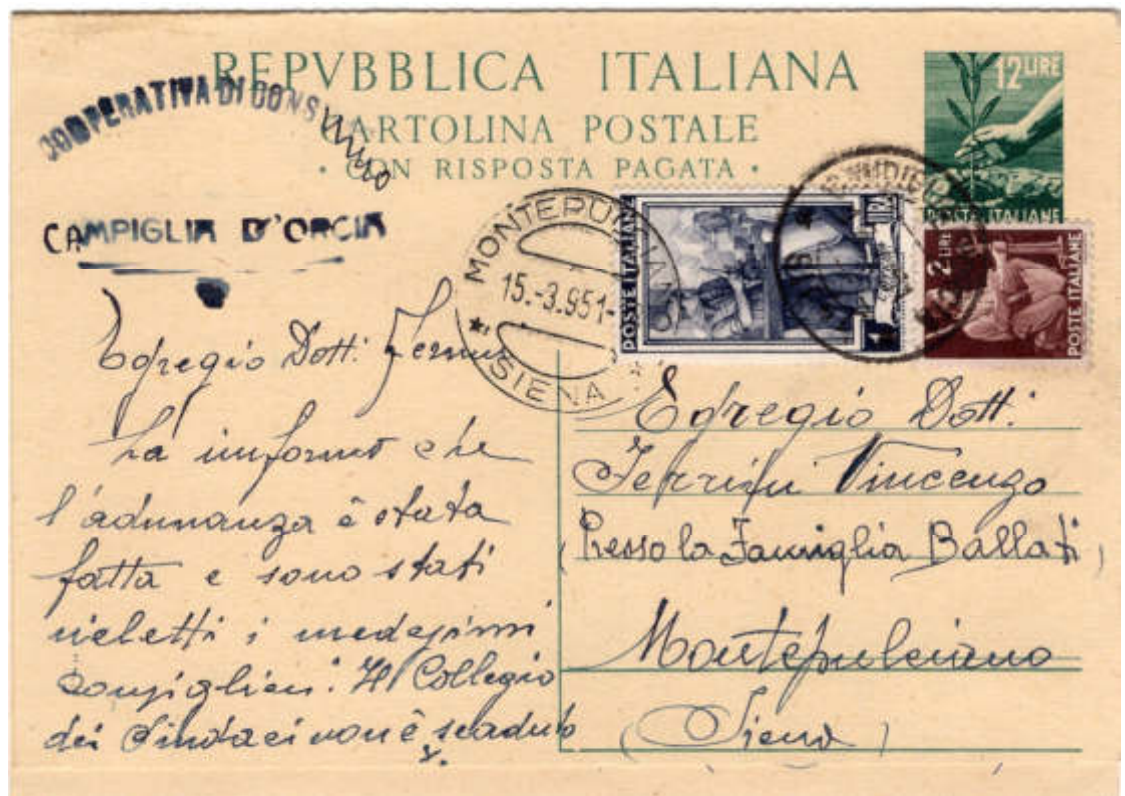 REPVBBLICA ITALIANA
CARTOLINA POSTALE
· CON RISPOSTA PAGATA ·
12 LIRE
POSTE ITALIANE
COOPERATIVA DI CONSVMO
CAMPIGLIA D'ORCIA
MONTEPULCIANO
15.-3.951-
SIENA
POSTE ITALIANE
1 LIRA
2 LIRE
POSTE ITALIANE
Egregio Dott:
La informo che
l'adunanza è stata
fatta e sono stati
rieletti i medesimi
Consiglieri. Il Collegio
dei Sindaci non è scaduto
Egregio Dott:
Vincenzo
(Presso la Famiglia Ballati)
Montepulciano
(Siena)